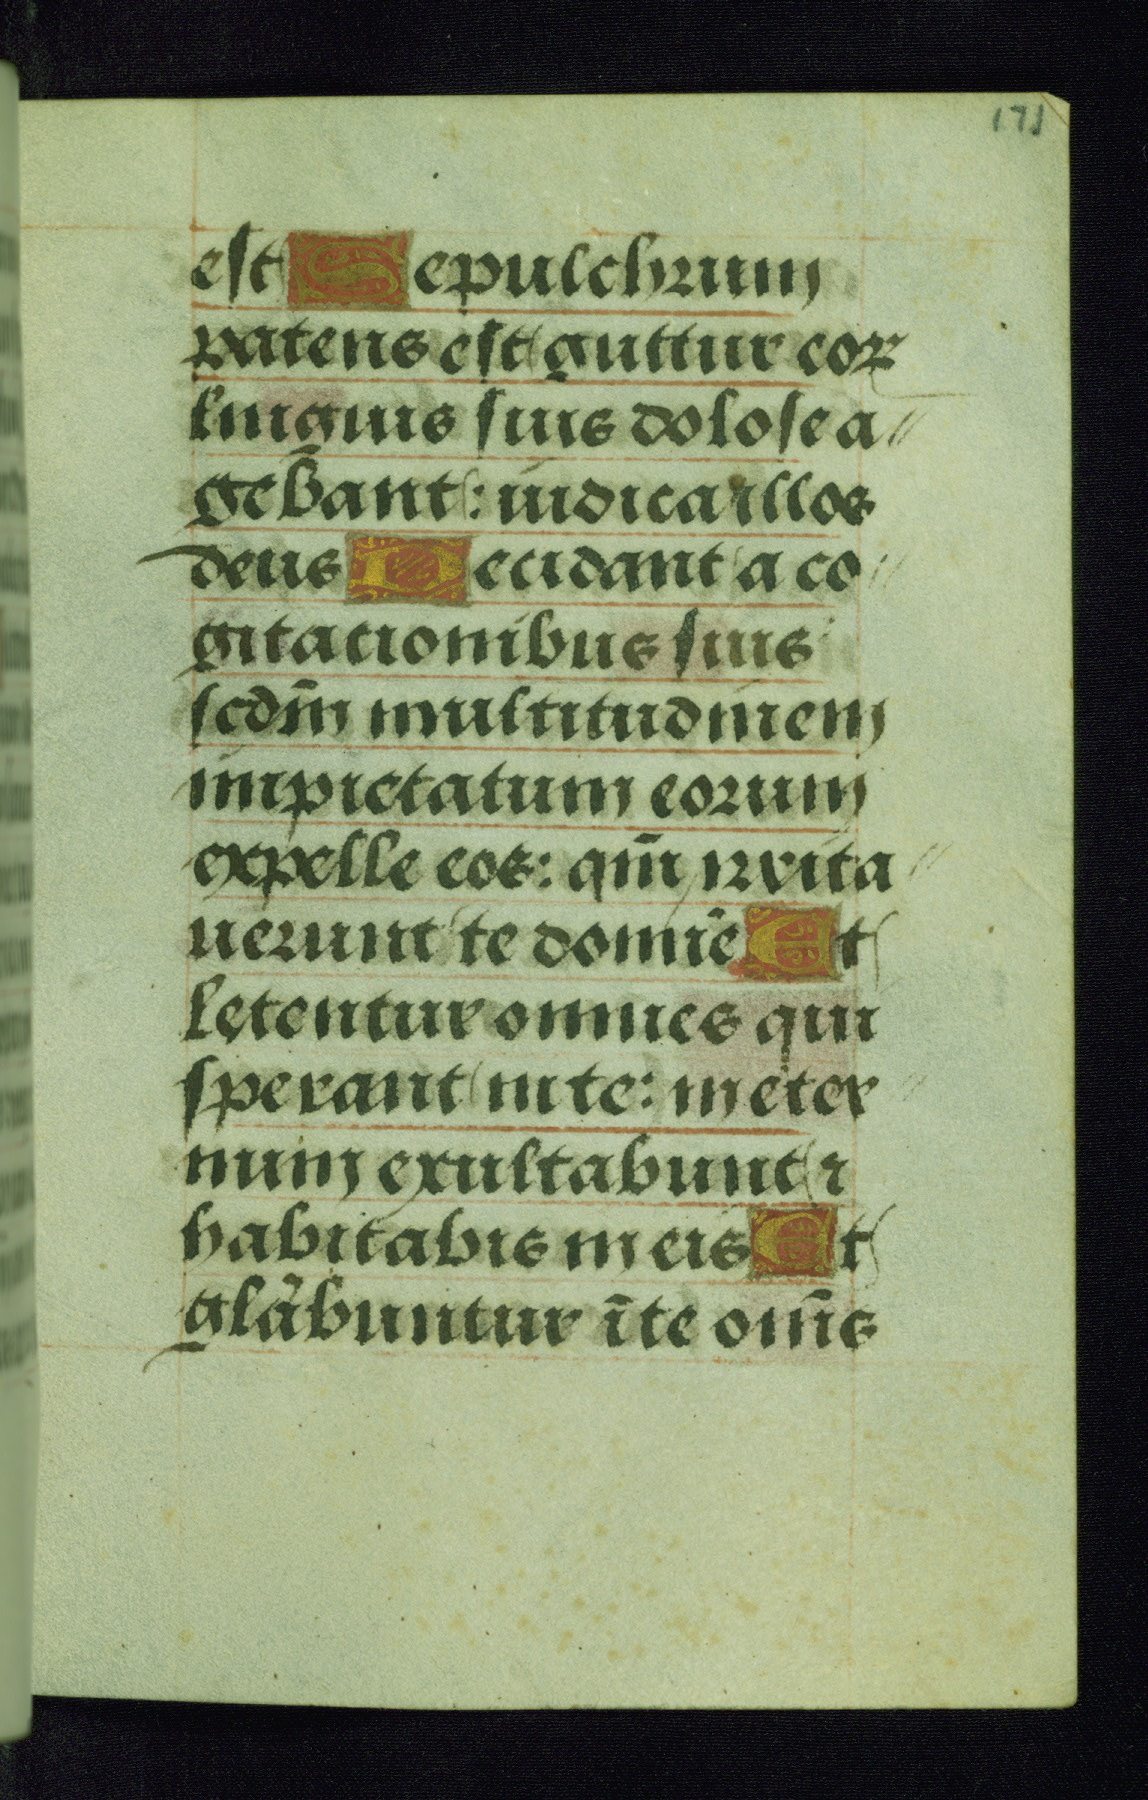 171
est Sepulchrum
patens est guttur coꝝ
linguis suis dolose a
geb̄ant: iudica illos
deus Decidant a co
gitacionibus suis
scdm̄ multitudinem
impietatum eorum
expelle eos: qm̄ irrita
uerunt te domīe Et
letentur omnes qui
sperant in te: in eter
num exultabunt ⁊
habitabis in eis Et
glāb̄untur ī te om̄s